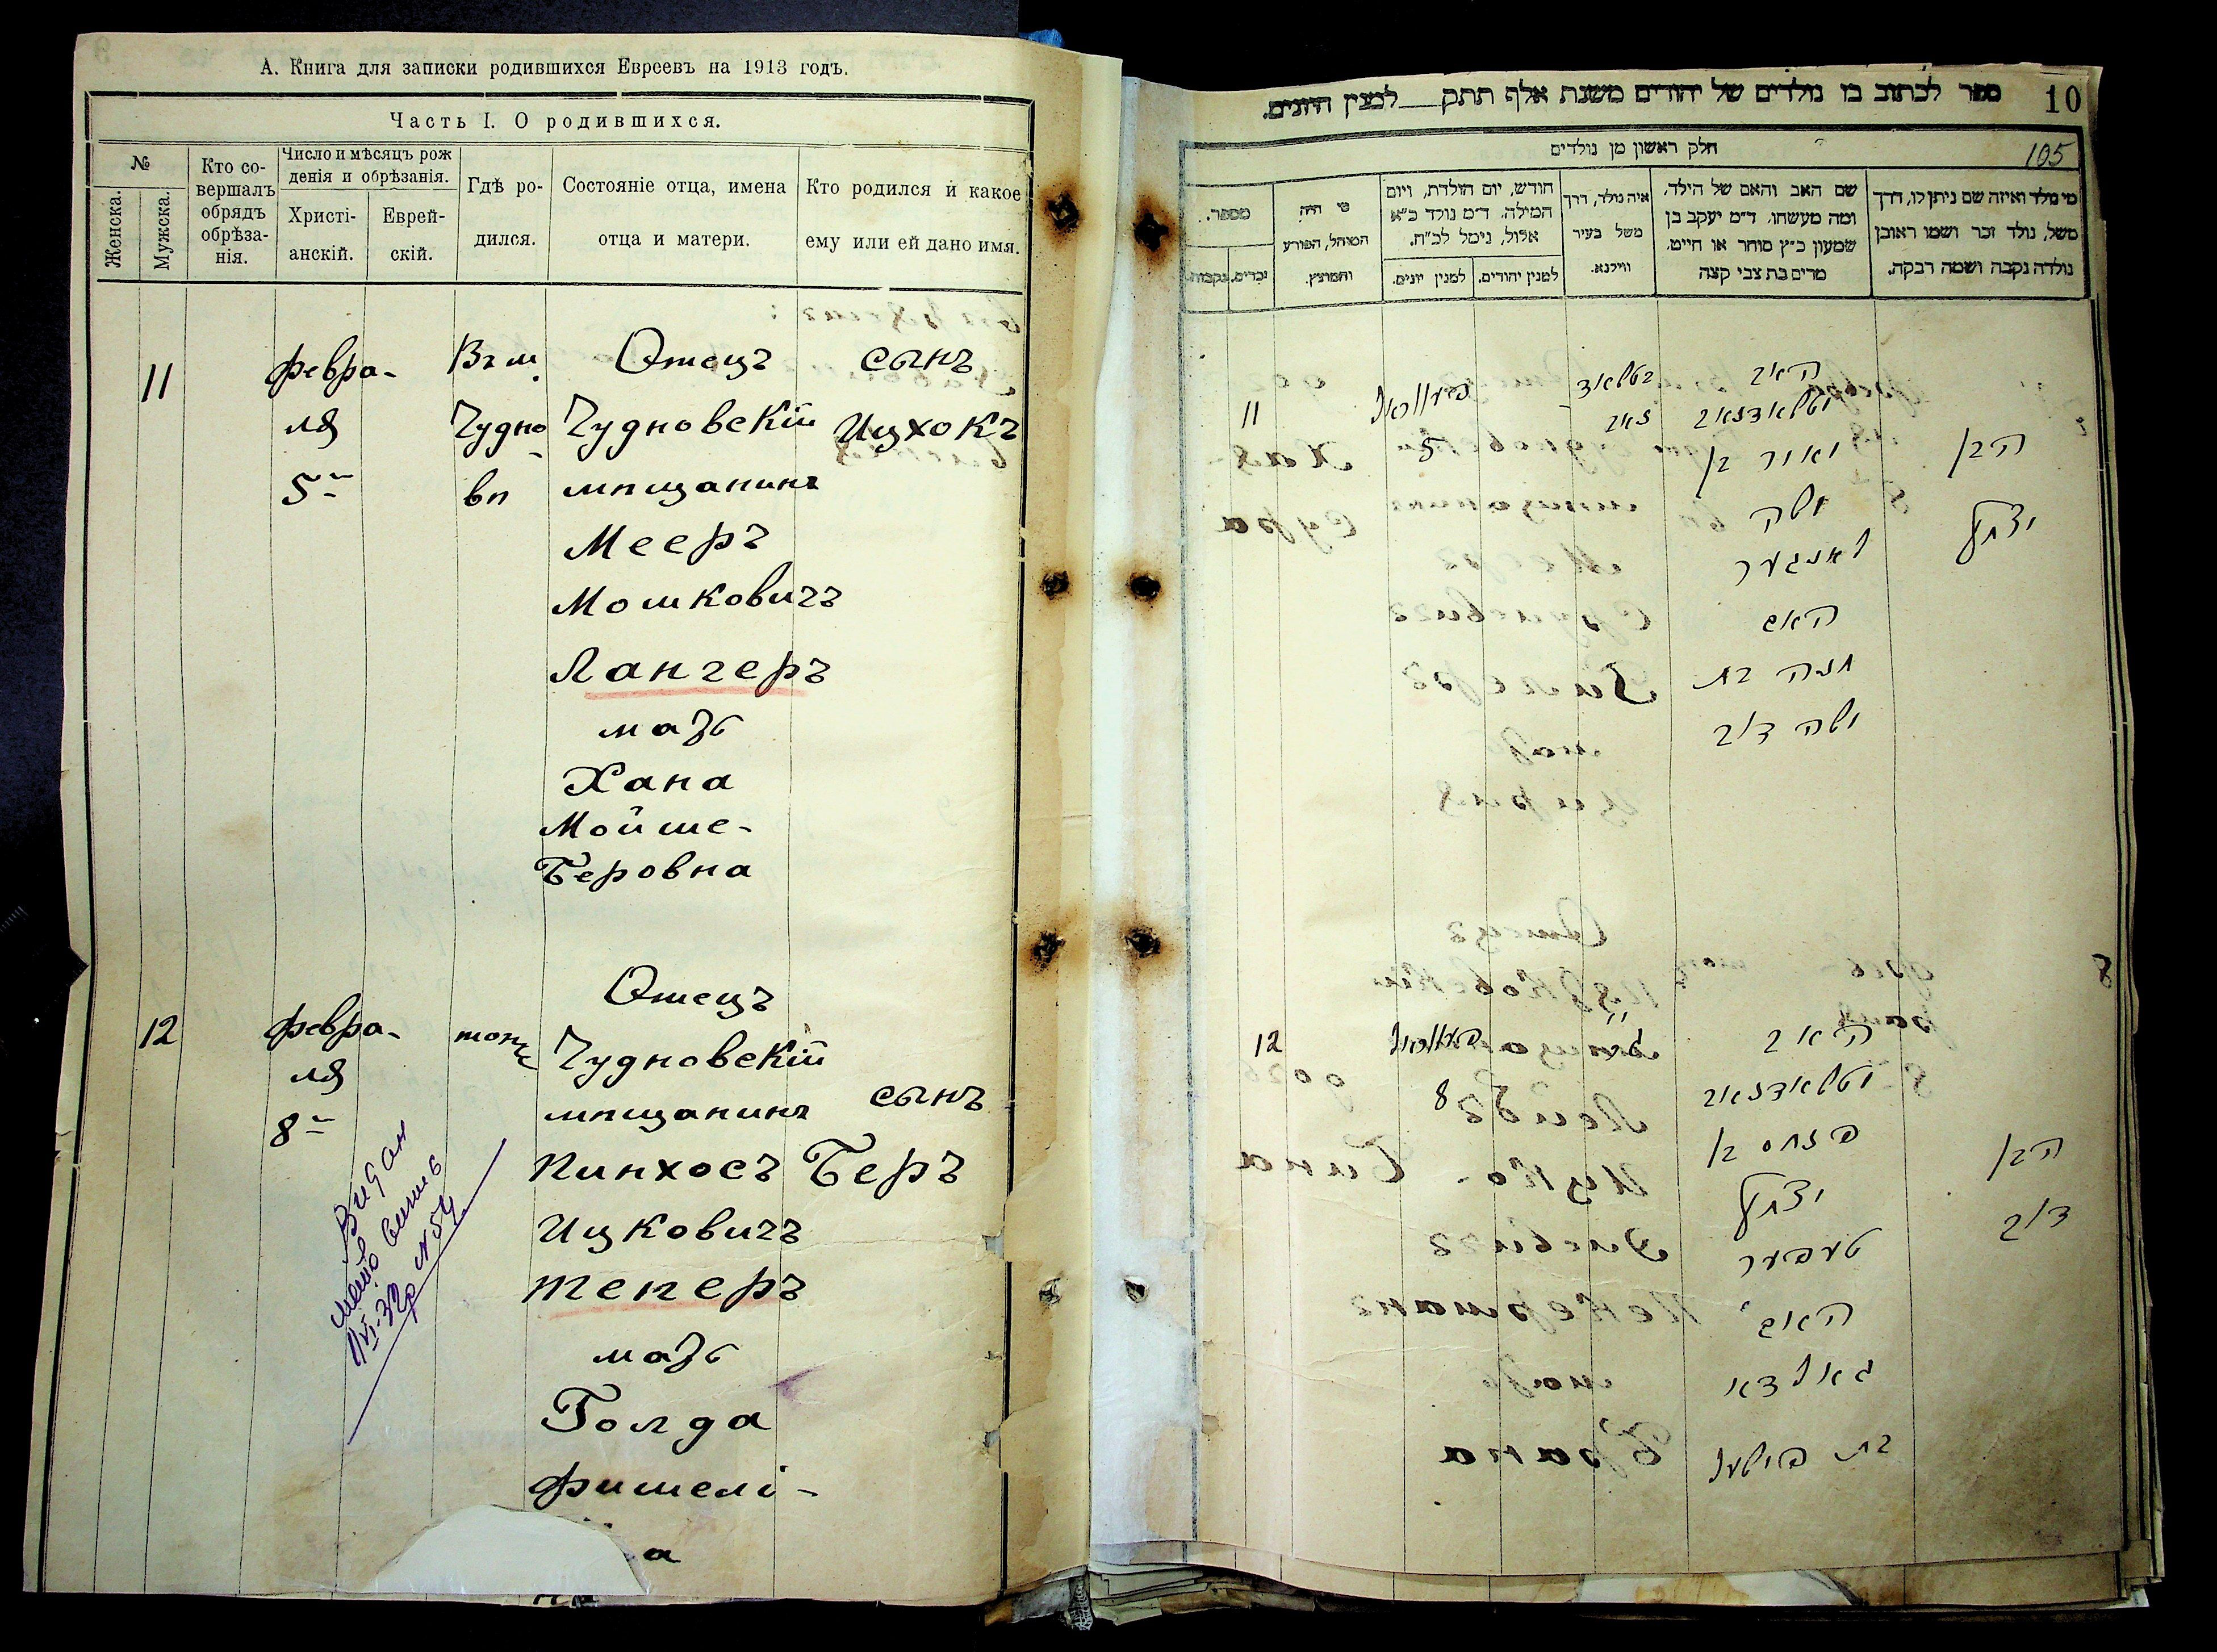 А. Книга для записки родившихся Евреевъ на 1913 годъ.
Часть I. О родившихся.
№
Женска.
Мужска.
Кто со-
вершалъ
обрядъ
обрѣза-
нія.
Число и мѣсяцъ рож
денія и обрѣзанія.
Христі-
анскій.
Еврей-
скій.
Гдѣ ро-
дился.
Состояніе отца, имена
отца и матери.
Кто родился и какое
ему или ей дано имя.
11
февра-
ля
5
Въ м.
Чудно-
вѣ
Отецъ
Чудновскій
мѣщанинъ
Мееръ
Мошковичъ
Лангеръ
мать
Хана
Мойше-
Беровна
сынъ
Ицхокъ
12
февра-
ля
8
тоже
Отецъ
Чудновскій
мѣщанинъ
Пинхосъ
Ицковичъ
Теперъ
мать
Голда
Фишелі-
а
сынъ
Беръ
Видан
№ 54
10
ספר לכתוב בו נולדים של יהודים משנת אלף תתק למנין היונים.
105
חלק ראשון מן נולדים
מי נולד ואיזה שם ניתן לו, דרך
משל, נולד זכר ושמו ראובן
נולדה נקבה ושמה רבקה.
שם האב והאם של הילד,
ומה מעשהו. ד״מ יעקב בן
שמעון כ״ץ סוחר או חייט.
מרים בת צבי קצה
איה נולד, דרך
משל בעיר
ווילנא.
חודש, יום הולדת, ויום
המילה. ד״מ נולד כ״א
אלול, נימל לכ״ח.
למנין יהודים.
למנין יונים.
מי היה
המוהל, הפורע
והמוצץ.
מספר.
זכרים.
נקבות.
11
פעוואל
5
האב
מאיר בן
משה
לאנגער
האם
חנה בת
משה דוב
הבן
יצחק
12
פעוואל
8
האב
פנחס בן
יצחק
טעפער
האם
גאלדא
בת פישעל
הבן
דוב